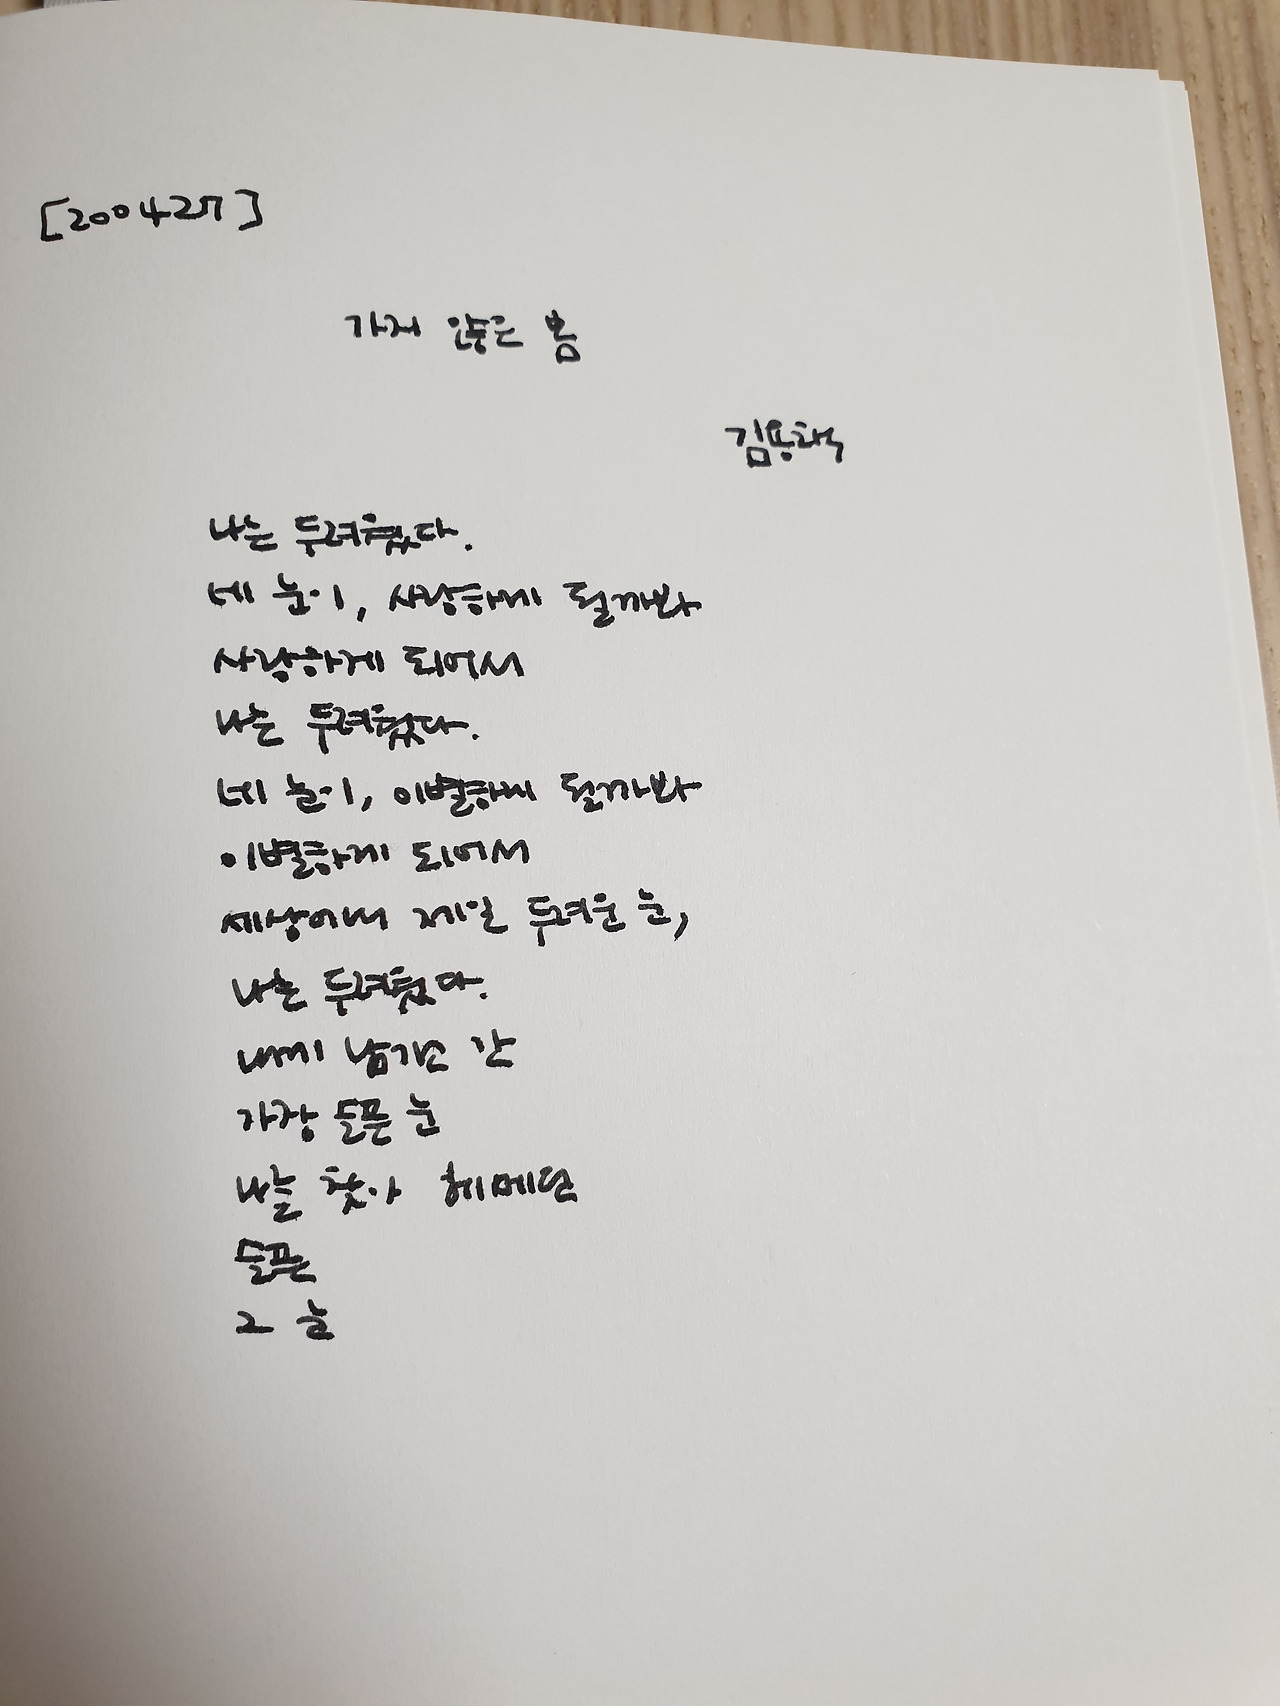 [200427]
가지 않은 봄
김용택
나는 두려웠다.
네 눈이, 사랑하게 될까봐
사랑하게 되어서
나는 두려웠다.
네 눈이, 이별하게 될까봐
이별하게 되어서
세상에서 제일 두려운 눈,
나는 두려웠다.
내게 남기고 간
가장 슬픈 눈
나를 찾아 헤매던
슬픈
그 눈